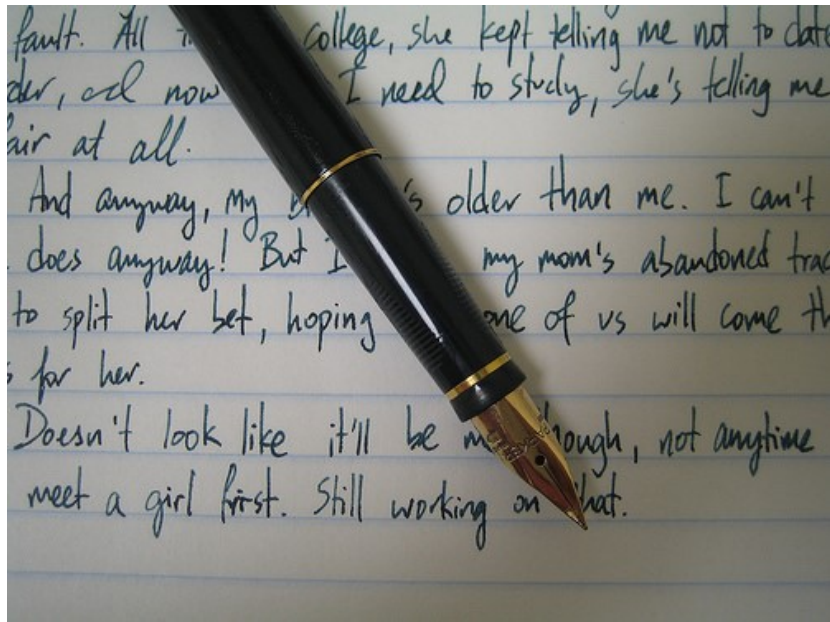 fault. All college, she kept telling me not to date
and now I need to study, she's telling me
at all.
And anyway, my older than me. I can't
does anyway! But I my mom's abandoned
to split her bet, hoping one of us will come
for her.
Doesn't look like it'll be not anytime
meet a girl first. Still working on that.